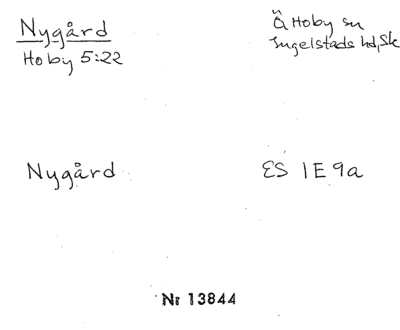 Nygård
Hoby 5:22
Ö Hoby sn
Ingelstads hd, Sk
Nygård
ES 1E9a
Nr 13844